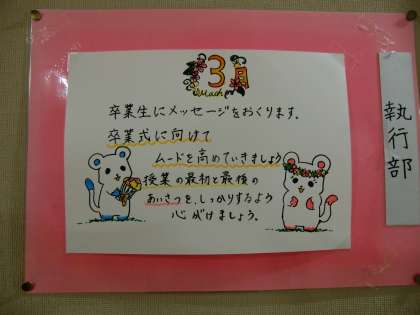 3月
March
卒業生にメッセージをおくります。
卒業式に向けて
ムードを高めていきましょう
授業の最初と最後の
あいさつを、しっかりするよう
心がけましょう。
執行部